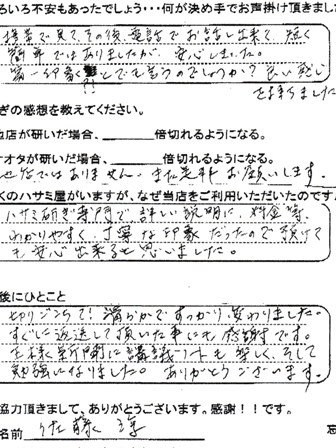 ろいろ不安もあったでしょう･･･何が決め手でお声掛け頂きまし
見て、その後、電話でお話し出来て、短く
ではありましたが、安心しました。
第一印象とでも言うのでしょうか？良い感じ
を持ちました
ぎの感想を教えてください。
店が研いだ場合、________倍切れるようになる。
オタが研いだ場合、________倍切れるようになる。
ではありません。また是非お願いします。
くのハサミ屋がいますが、なぜ当店をご利用いただいたのです
ハサミ研ぎ専門で詳しい説明に、料金等、
わかりやすく、丁寧な印象だったので預けて
も安心出来ると思いました。
後にひとこと
切りごこち！滑らかですっかり変わりました。
すぐに返送して頂いた事にも感謝です。
新聞に講義ノートも楽しく、そして
勉強になりました。ありがとうございます。
協力頂きまして、ありがとうございます。感謝！！です。
名前 佐藤